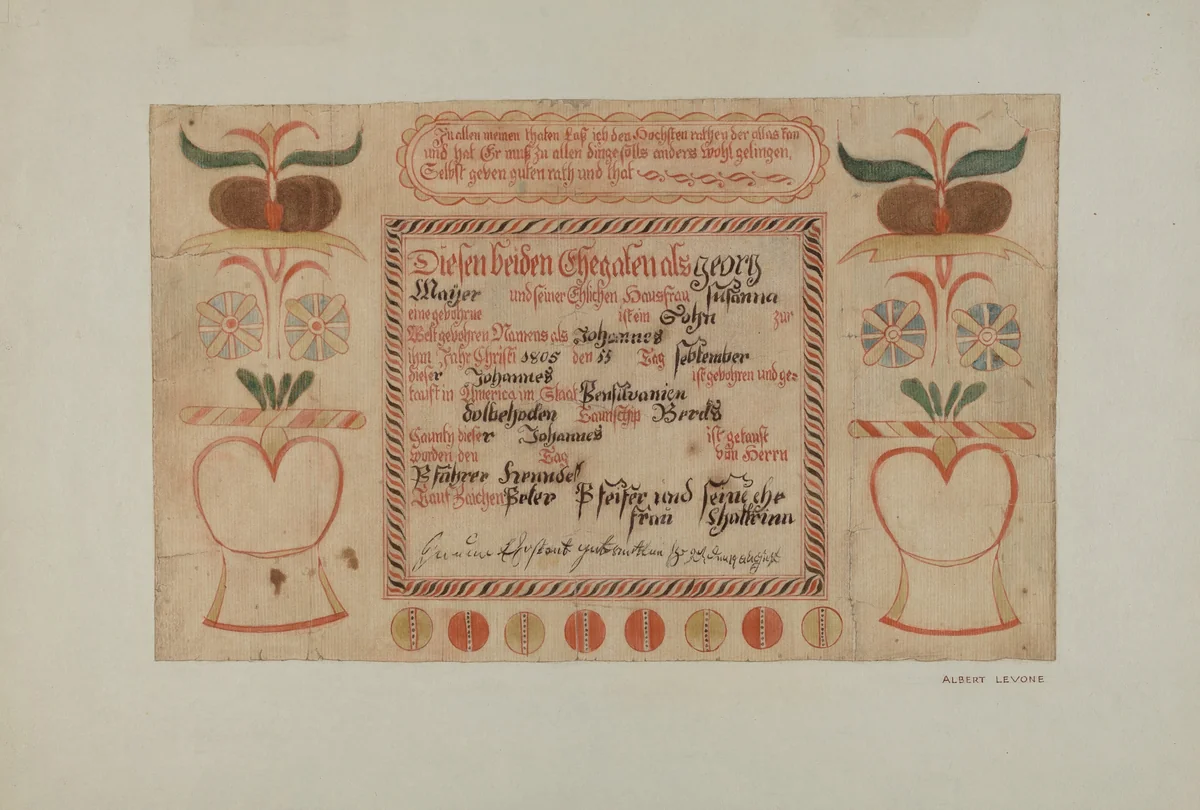 In allen meinen thaten Laß ich den Hochsten rathen der allas kan
und hat Er muß zu allen dinge solls anders wohl gelingen,
Selbst geven guten rath und that
Diesen beiden Ehegaten als georg
Mayer und seiner Ehlichen Hausfrau susanna
eine gebohrne ist ein Sohn zur
Welt gevohren Namens als Johannes
ihm Jahr Christi 1805 den Tag september
dieser Johannes ist gevohren und ge=
tauft in America im Staat Pensilvanien
Taunschip Berds
Caunty dieser Johannes ist getauft
worden den Tag von Herrn
Pfahrer
Tauf Zaichen Peter Pfeifer und seine ehe
frau
ALBERT LEVONE